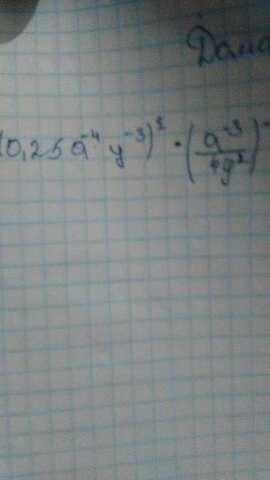 Дома
(0,25a⁻⁴ y⁻³)² · (a⁻³/4y²)⁻